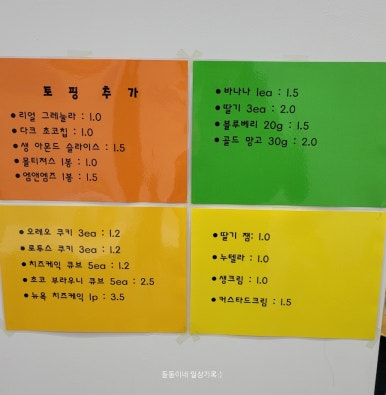 토 핑 추 가
• 리얼 그래놀라 : 1.0
• 다크 초코칩 : 1.0
• 생 아몬드 슬라이스 : 1.5
• 몰티져스 1봉 : 1.0
• 엠앤엠즈 1봉 : 1.5
• 바나나 1ea : 1.5
• 딸기 3ea : 2.0
• 블루베리 20g : 1.5
• 골드 망고 30g : 2.0
• 오레오 쿠키 3ea : 1.2
• 로투스 쿠키 3ea : 1.2
• 치즈케익 큐브 5ea : 1.2
• 초코 브라우니 큐브 5ea : 2.5
• 뉴욕 치즈케익 1p : 3.5
• 딸기 잼: 1.0
• 누텔라 : 1.0
• 생크림 : 1.0
• 커스타드크림 : 1.5
돌돌이네 일상기록 :)